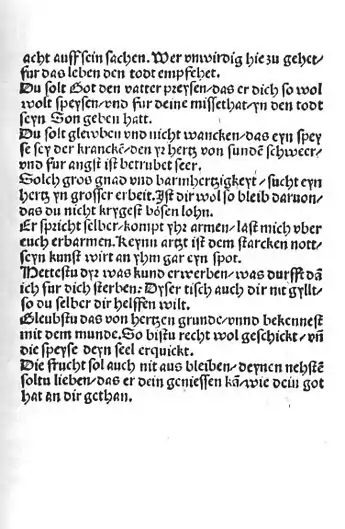 acht auff sein sachen. Wer vnwirdig hie zu gehet/
fur das leben den todt empfehet.
Du solt Got den vatter preysen/das er dich so wol
wolt speysen/vnd fur deine missethat/yn den todt
seyn Son geben hatt.
Du solt glewben vnd nicht wancken/das eyn spey
se sey der krancKē/den yr hertz von sundē schweer/
vnd fur angst ist betrubet seer.
Solch gros gnad vnd barmhertzigkeyt/sucht eyn
hertz yn grosser erbeit. Ist dir wol so bleib daruon/
das du nicht krygest bösen lohn.
Er spricht selber/kompt yhr armen/last mich vber
euch erbarmen. Keynn artzt ist dem starcken nott/
seyn kunst wirt an yhm gar eyn spot.
Hettestu dyr was kund erwerben/was durfft dā
ich fur dich sterben: Dyser tisch auch dir nit gyllt/
so du selber dir helffen wilt.
Gleubstu das von hertzen grunde/vnnd bekennest
mit dem munde. So bistu recht wol geschickt/vñ
die speyse deyn seel erquickt.
Die frucht sol auch nit aus bleiben/deynen nehstē
soltu lieben/das er dein geniessen kā/wie dein got
hat an dir gethan.